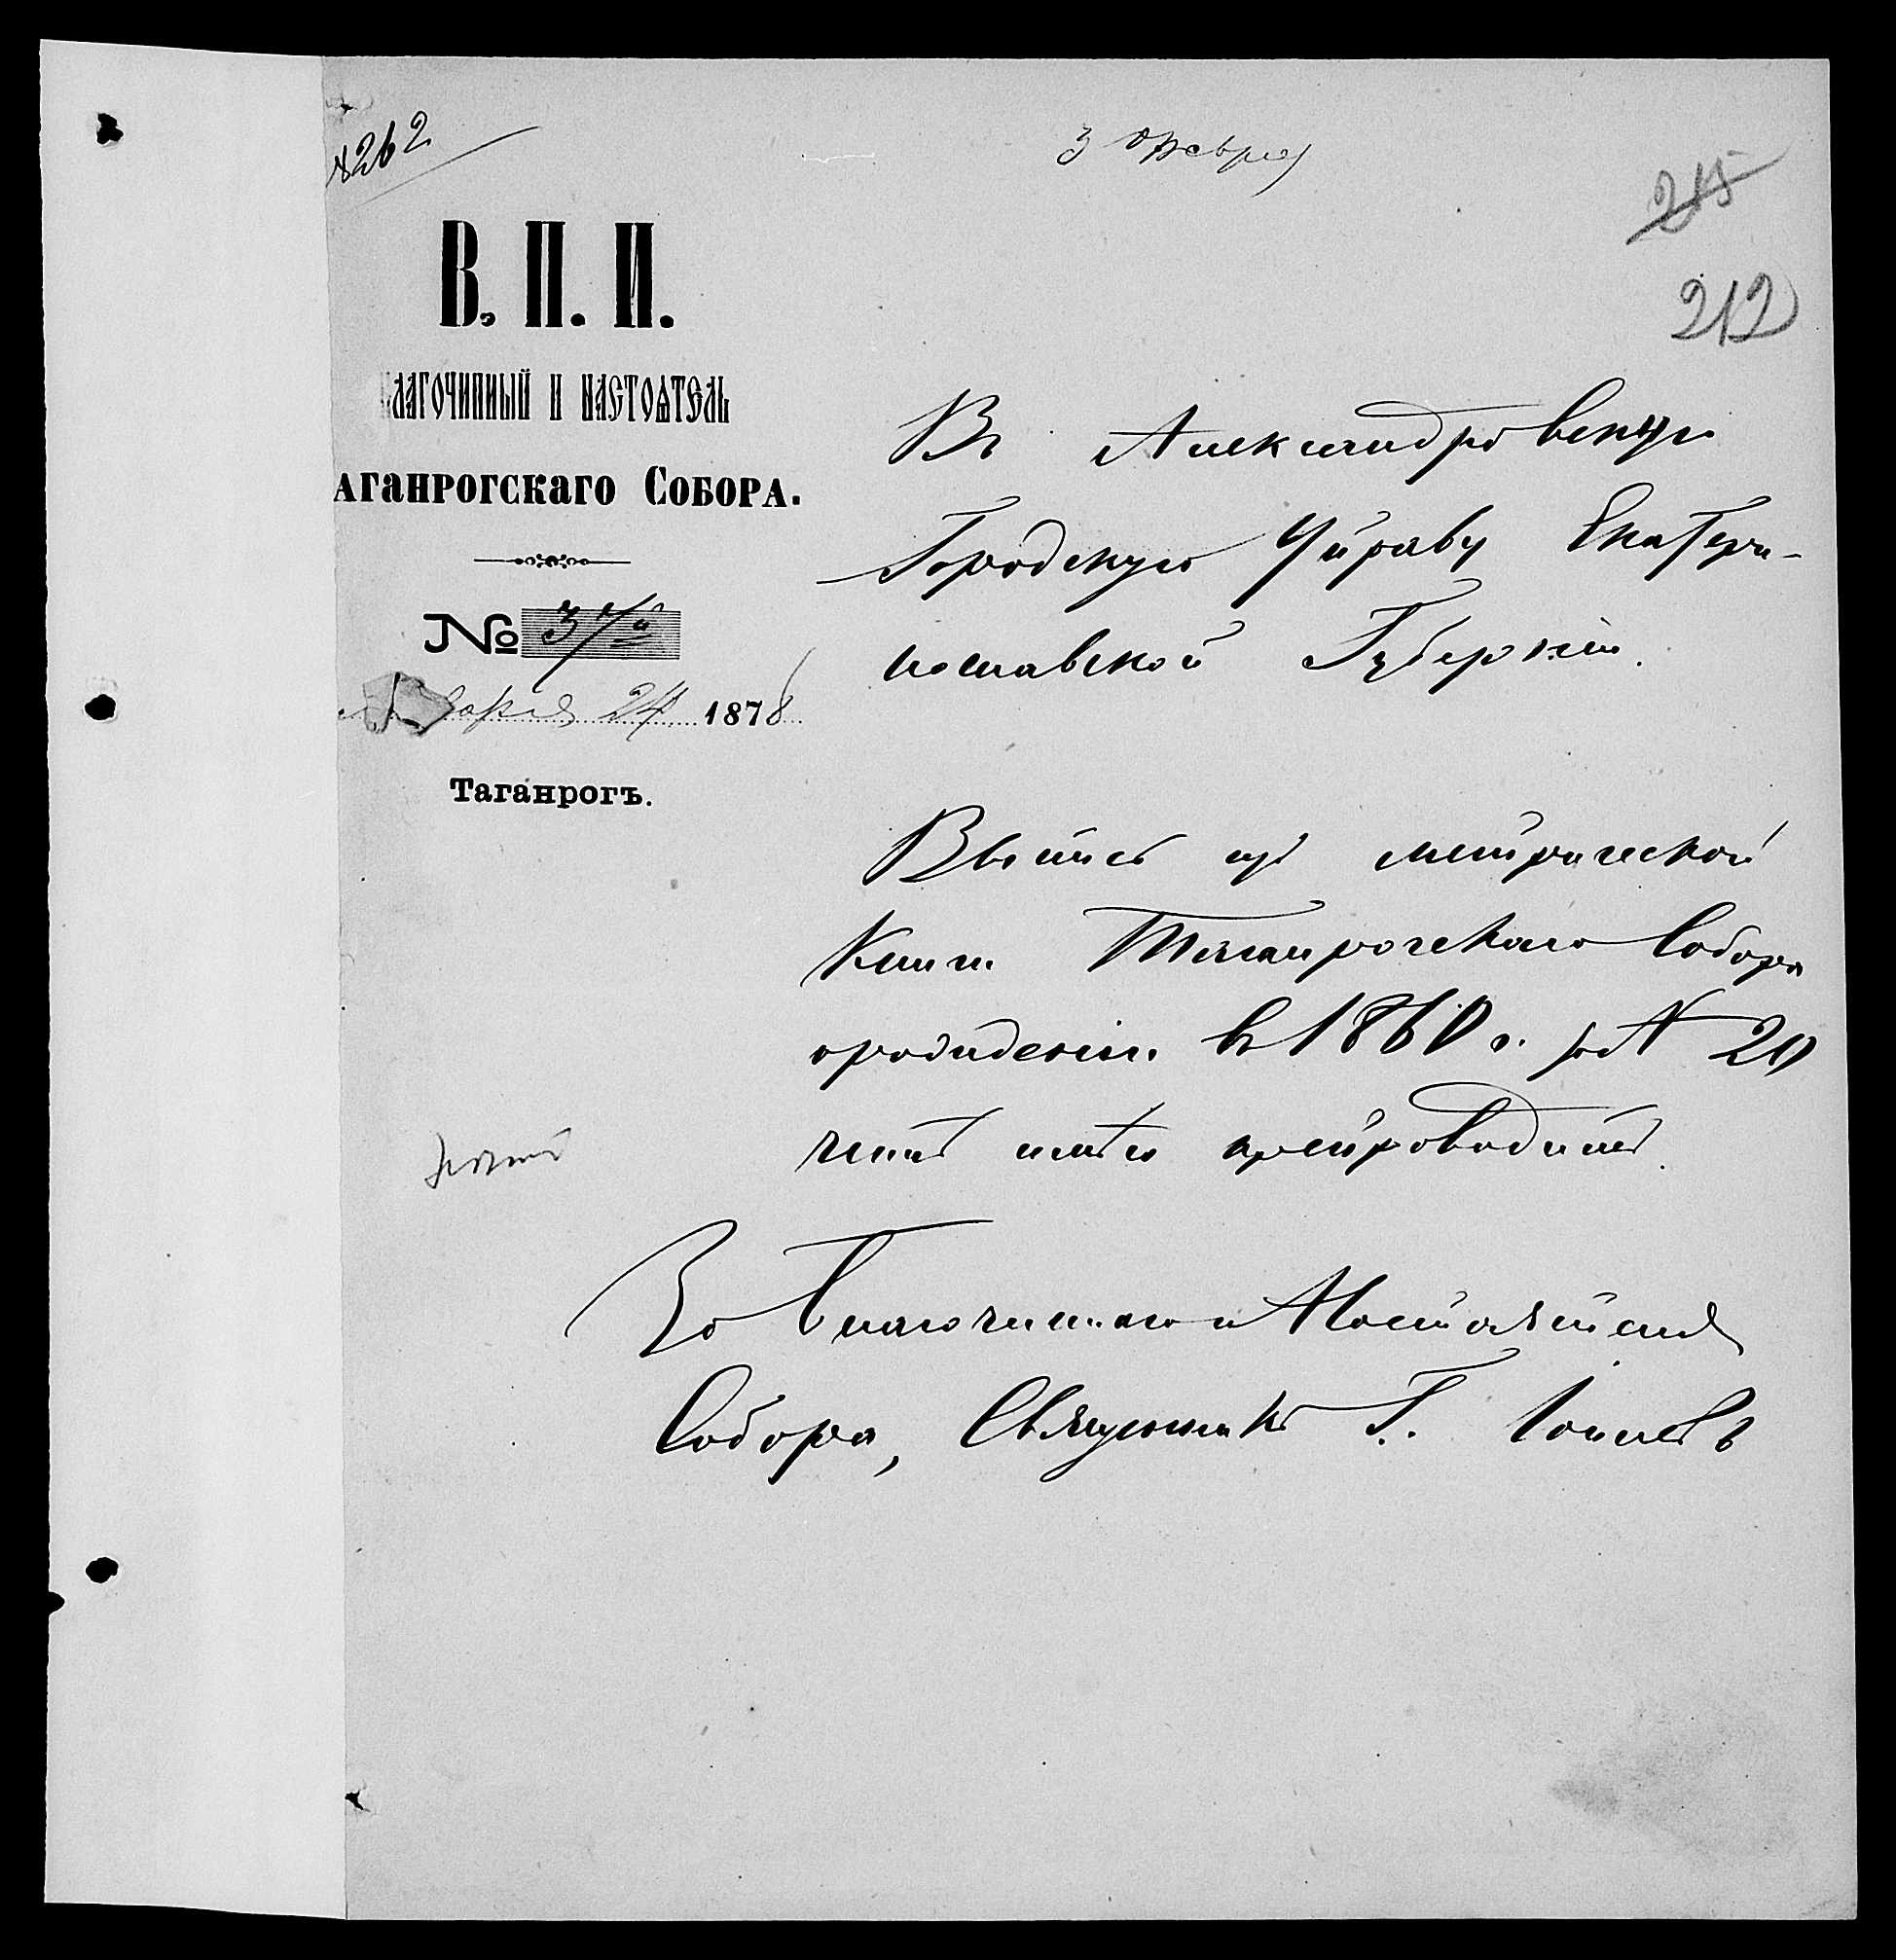 262
3 Февра
215
212
В. П. И.
лагочинный и настоѧтель
аганрогскаго Собора.
№ 37
Января 24 1878
Таганрогъ.
Въ Александровскую
Городскую Управу Екатери-
нославской Губернiи.
Выпись изъ метрической
Книги Таганрогскаго Собора
о рожденiи въ 1860 г. за № 20
честь имѣю препроводить.
За Благочиннаго и Настоятеля
Собора, Священникъ Г.